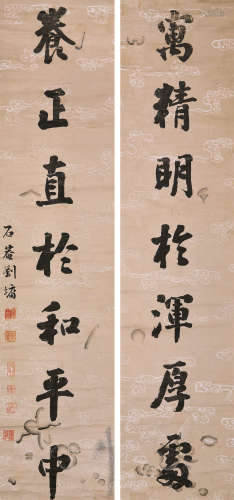 寓精明於渾厚處
養正直於和平中
石菴劉墉